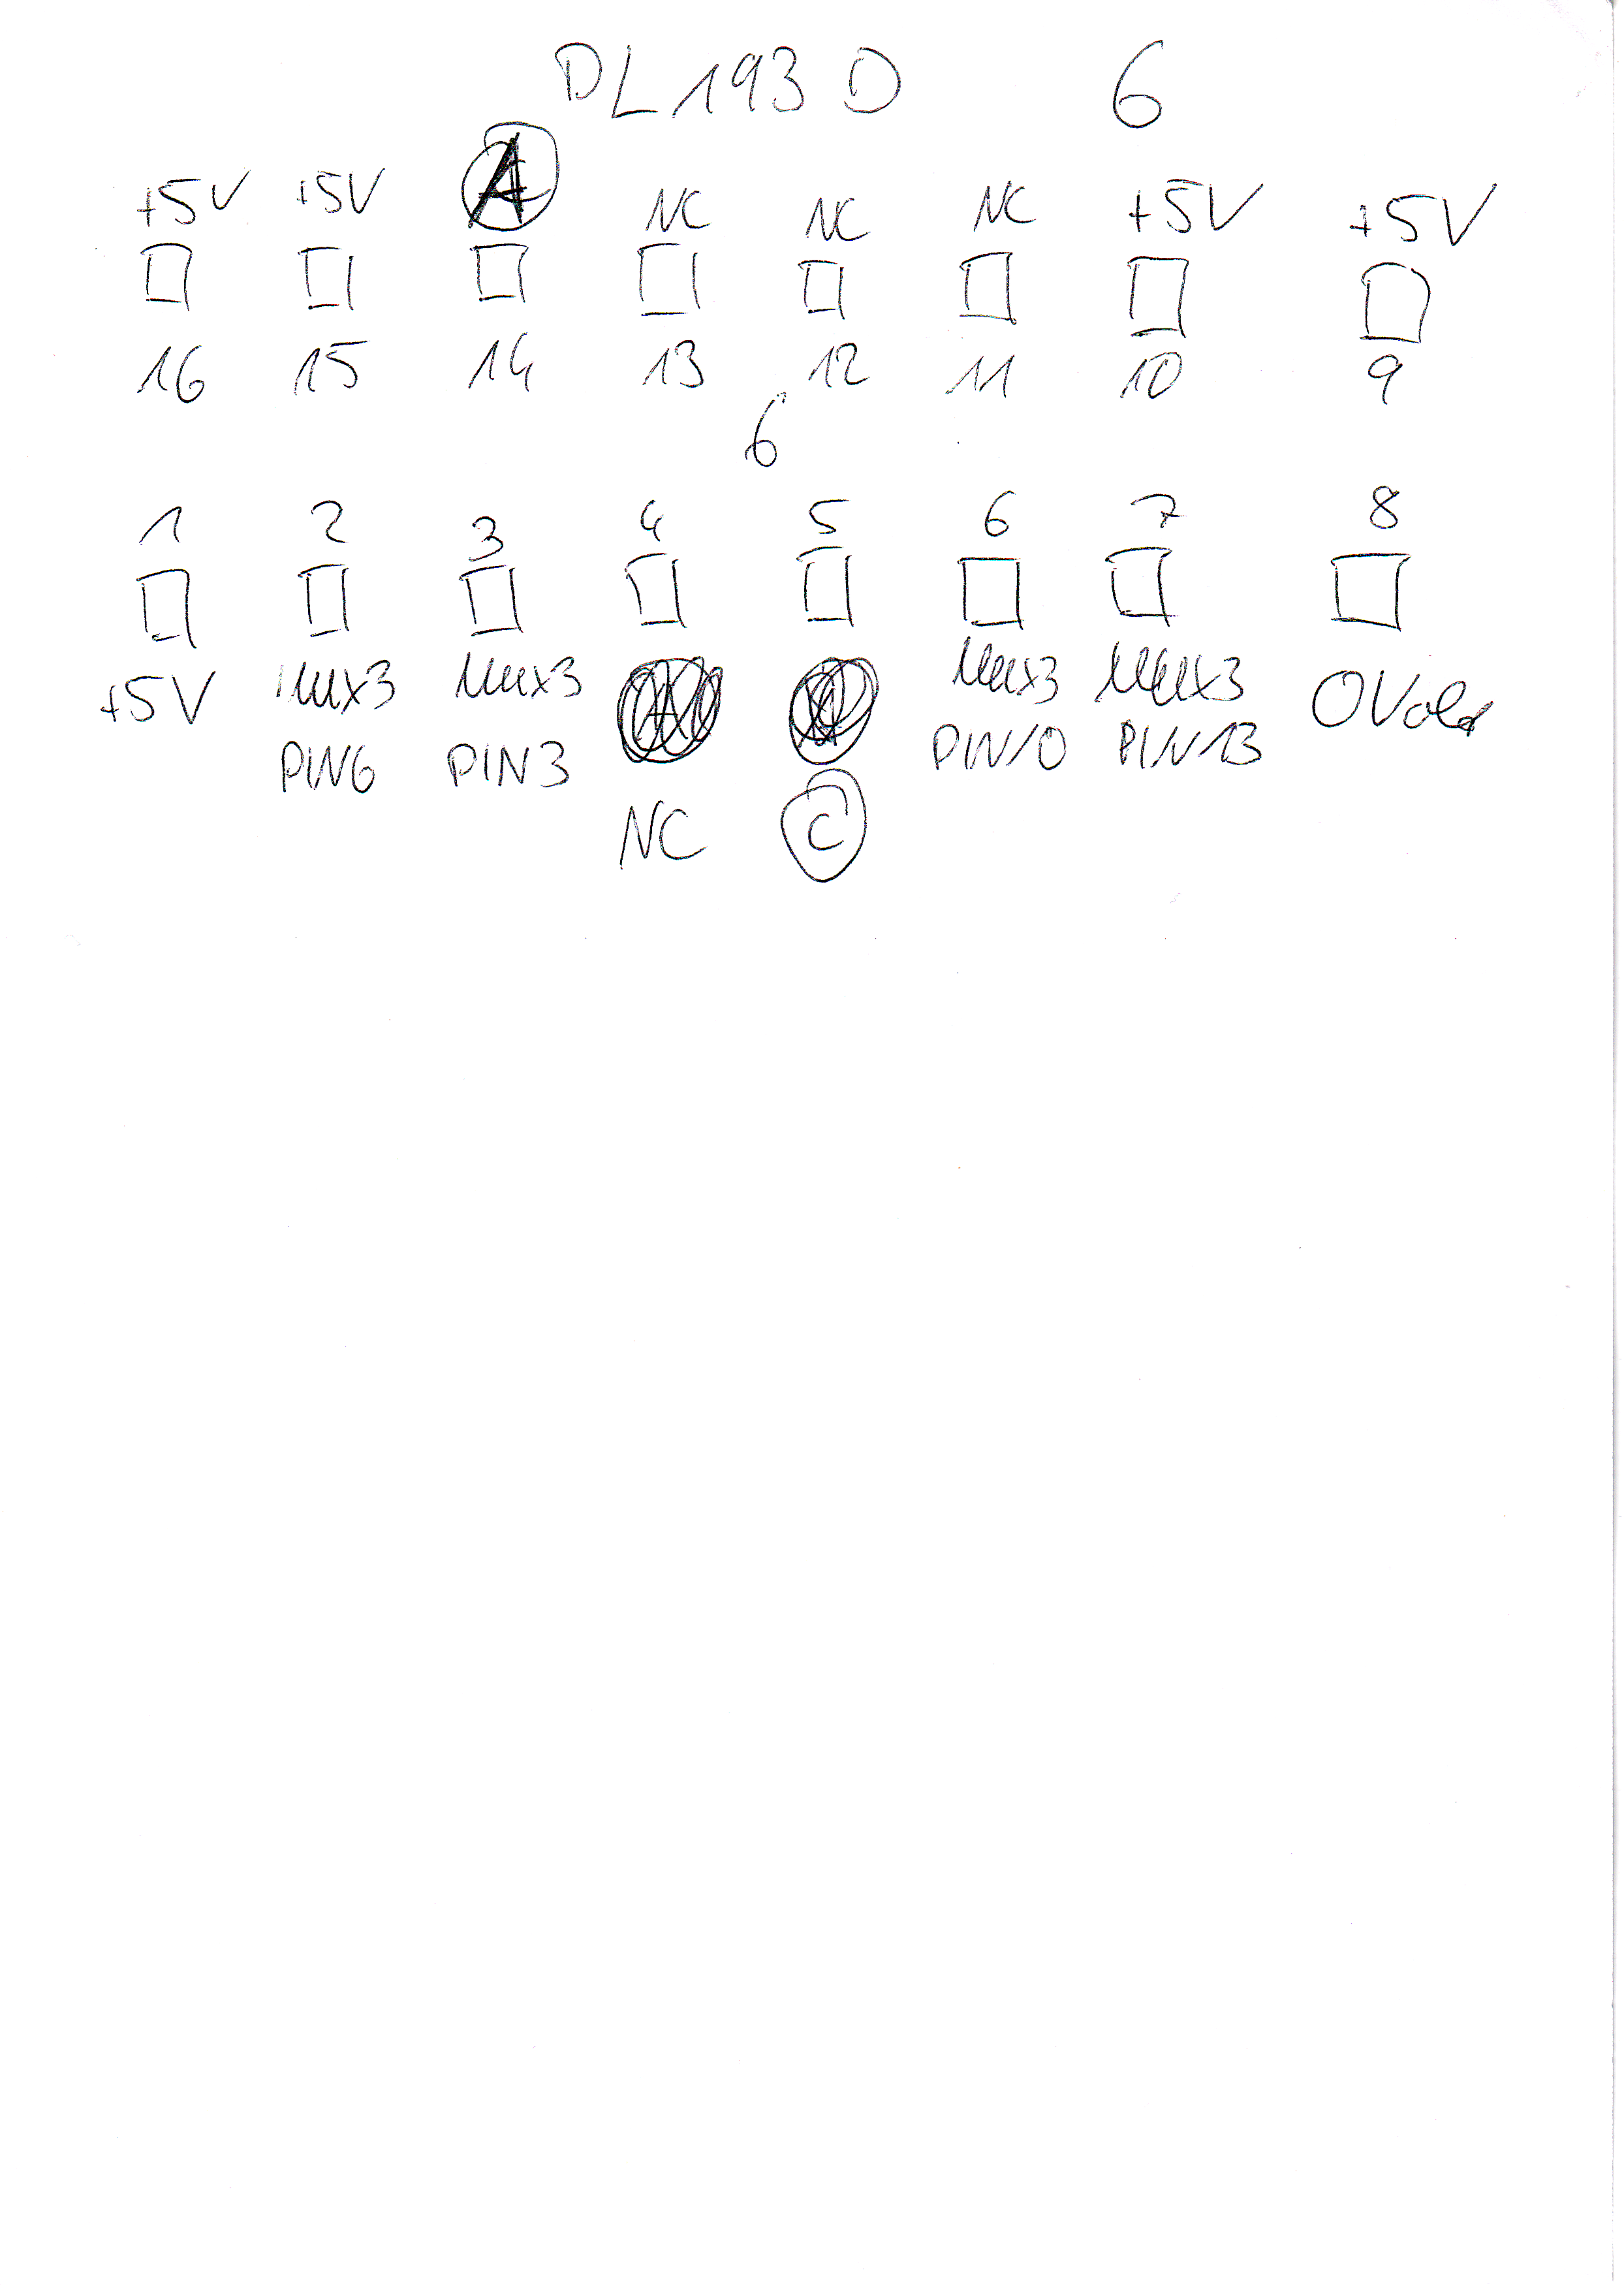 DL193D 6
+5V +5V A NC NC NC +5V +5V
16 15 14 13 12 11 10 9
6
1 2 3 4 5 6 7 8
+5V Mux3 Mux3 Mux3 Mux3 0Volt
PIN6 PIN3 PIN10 PIN13
NC C